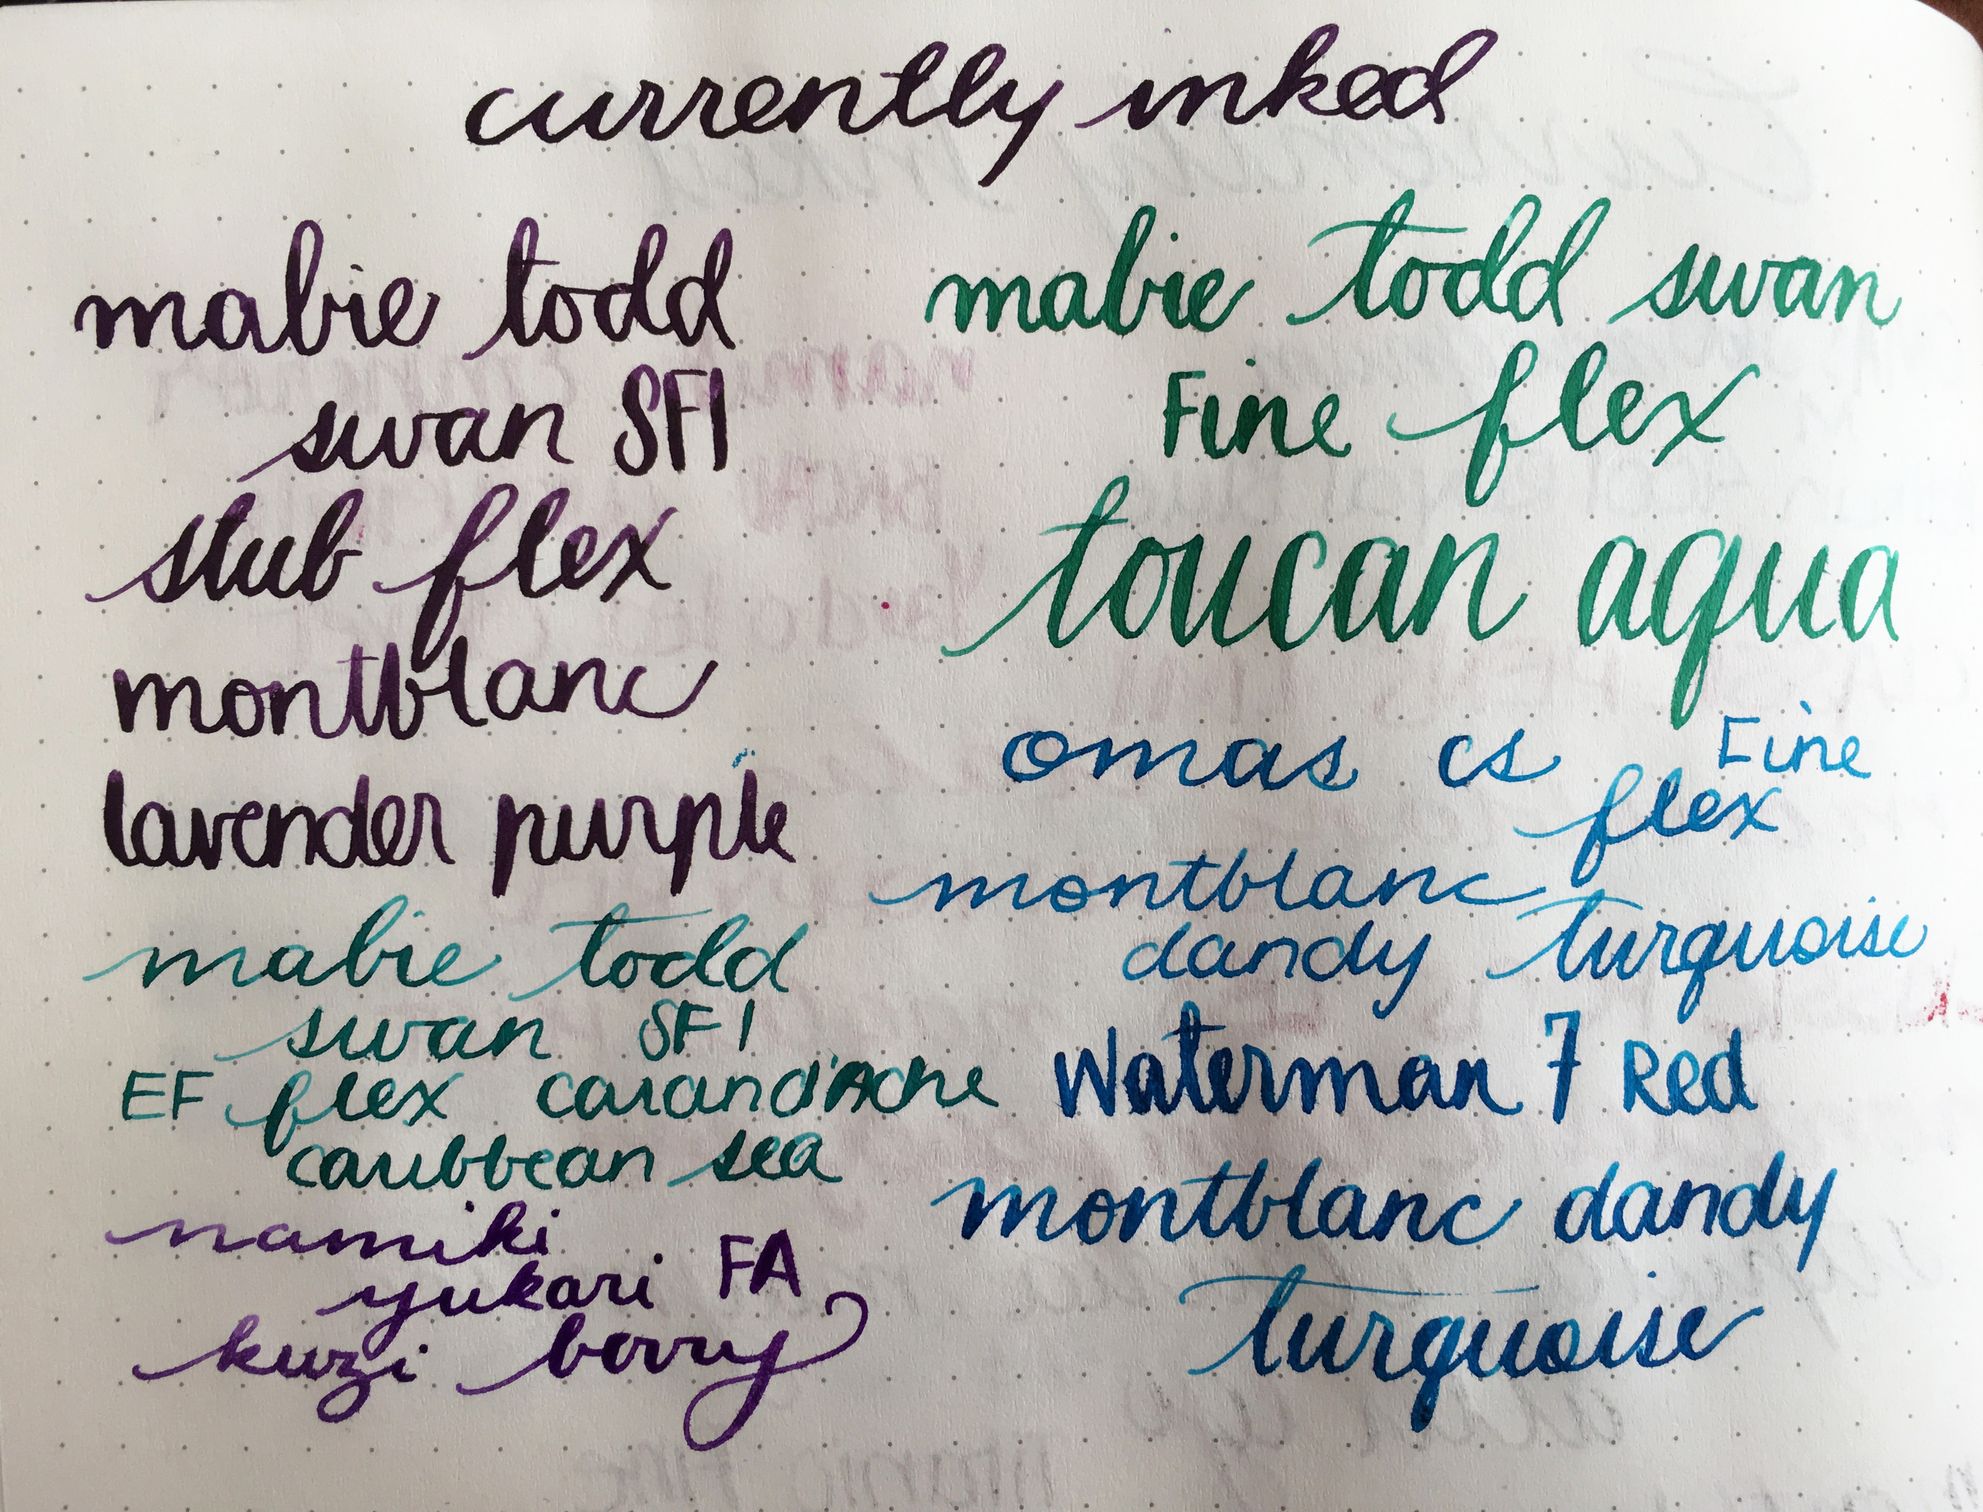 currently inked
mabie todd
swan SF1
stub flex
montblanc
lavender purple
mabie todd
swan SF1
EF flex carand'Ache
caribbean sea
namiki
yukari FA
kuzi berry
mabie todd swan
Fine flex
toucan aqua
omas cs Fine
flex
montblanc
dandy turquoise
Waterman 7 Red
montblanc dandy
turquoise